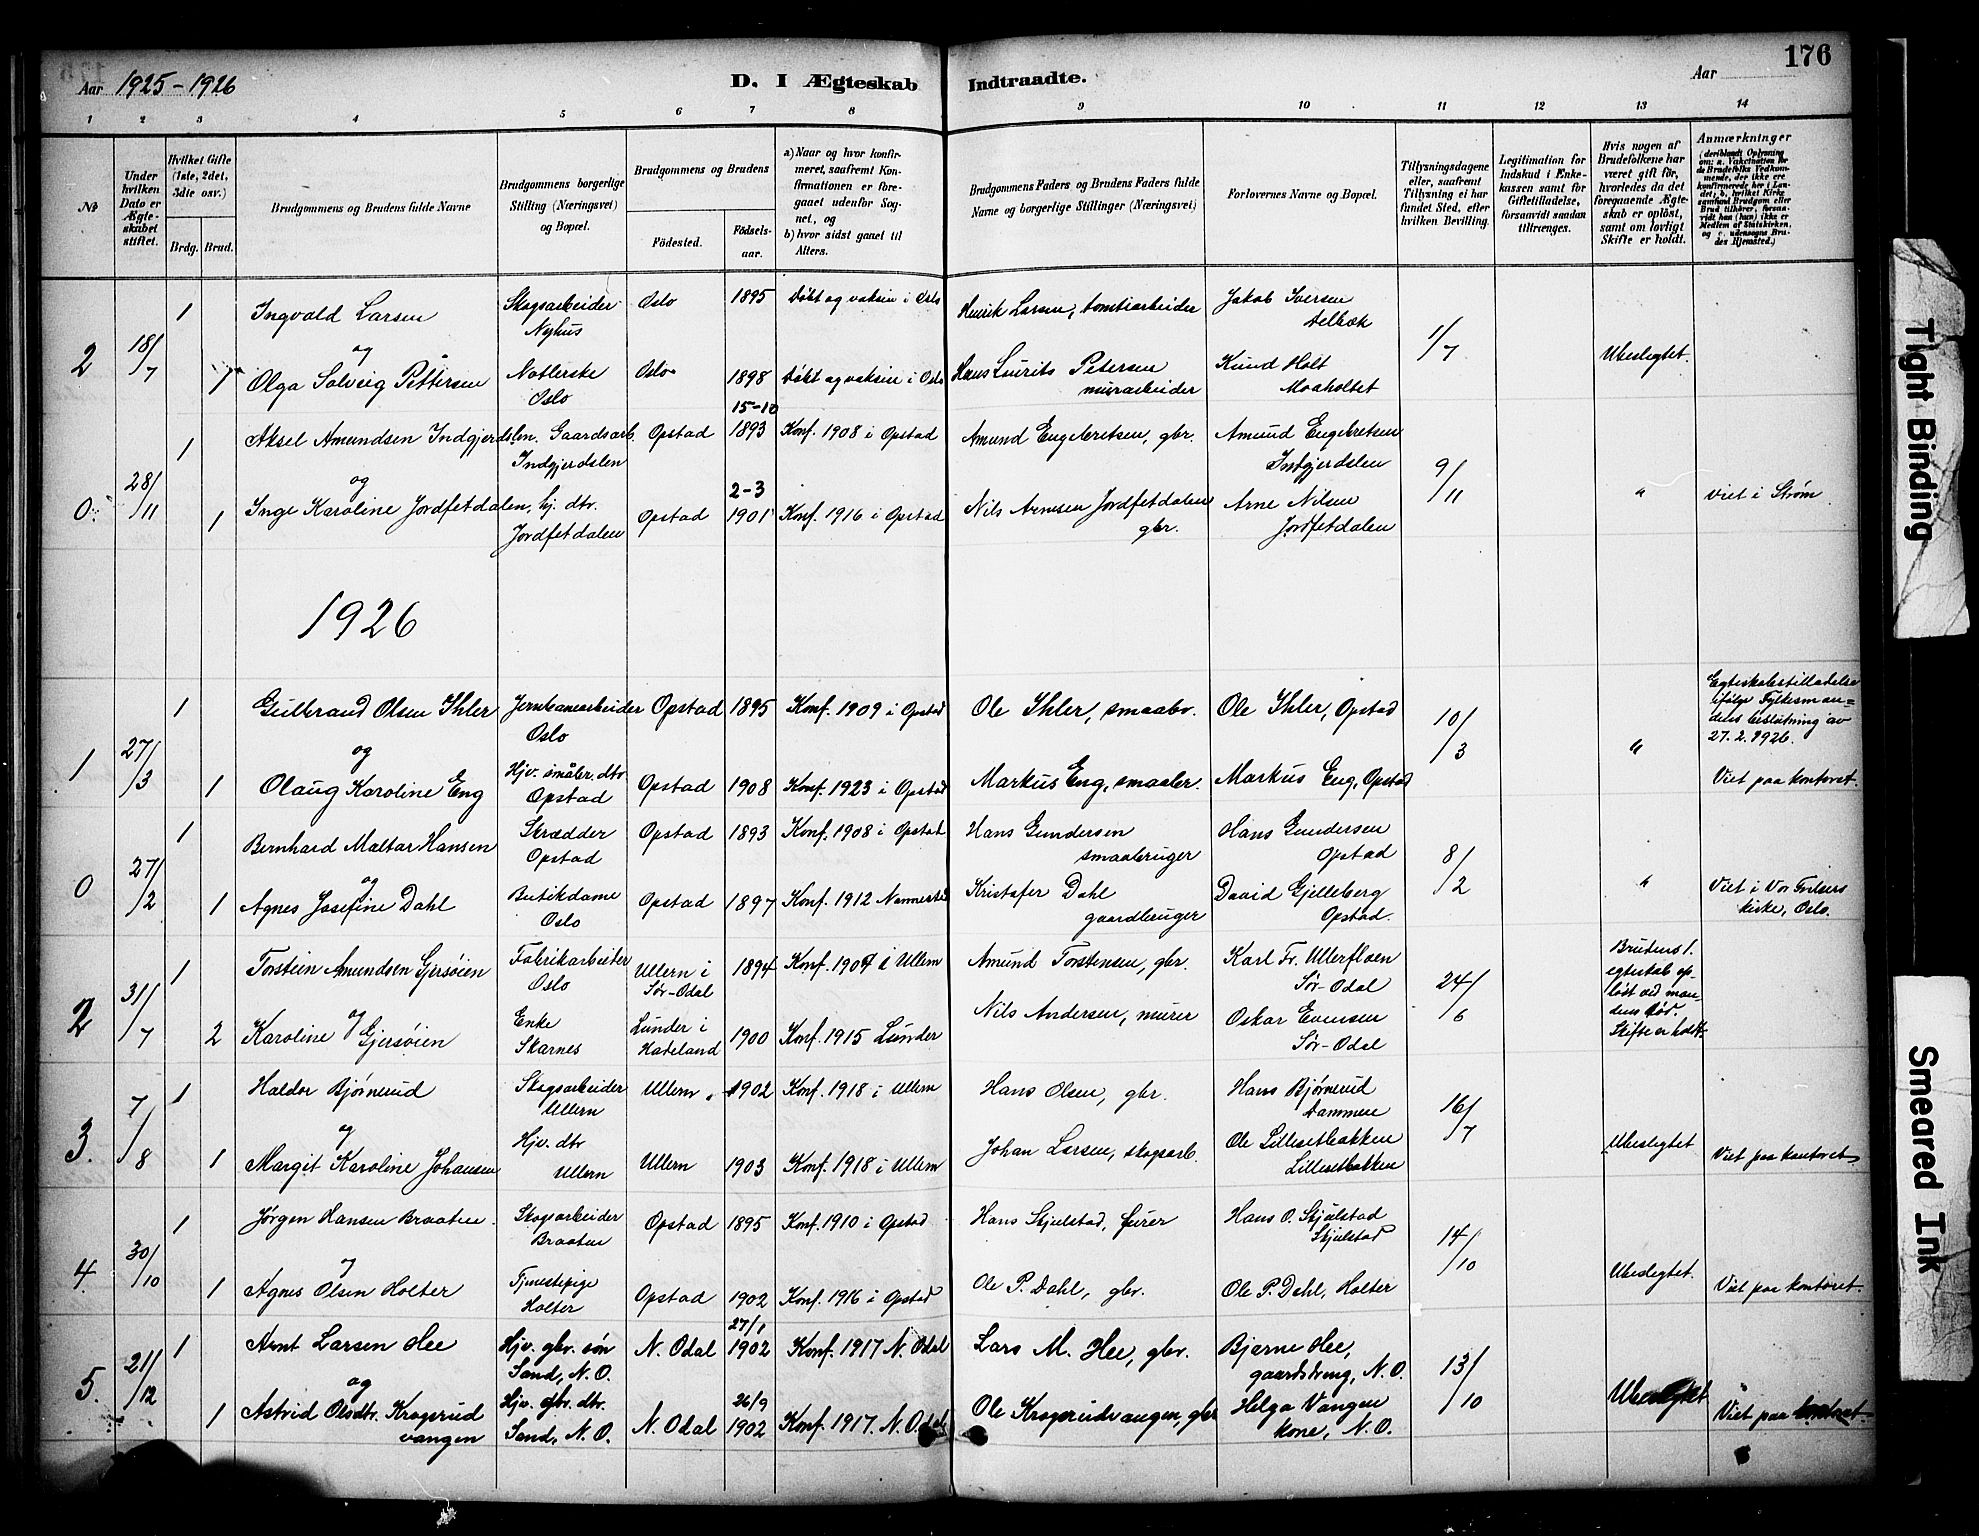 Aar 1925-1926
D. I Ægteskab Indtraadte.
Aar
176
1 2 3 4 5 6 7 8 9 10 11 12 13 14
№
Under hvilken Dato er Ægteskabet stiftet.
Hvilket Gifte (1ste, 2det, 3die osv.)
Brdg. Brud.
Brudgommens og Brudens fulde Navne
Brudgommens borgerlige Stilling (Næringsvei) og Bopæl.
Brudgommens og Brudens
Födested.
Födselsaar.
a) Naar og hvor konfirmeret, saafremt Konfirmationen er foregaaet udenför Sognet, og
b) hvor sidst gaaet til Alters.
Brudgommens Faders og Brudens Faders fulde Navne og borgerlige Stillinger (Næringsvei)
Forlovernes Navne og Bopæl.
Tillysningsdagene eller, saafremt Tillysning ei har fundet Sted, efter hvilken Bevilling.
Legitimation for Indskud i Enkekassen samt for Giftetilladelse, forsaavidt saadan tiltrænges.
Hvis nogen af Brudefolkene har været gift för, hvorledes da det foregaaende Ægteskab er oplöst, samt om lovligt Skifte er holdt.
Anmærkninger
2 18/7 1 Ingvald Larsen Skogsarbeider Nyhus Oslo 1895 Døbt og voksen i Oslo Henrik Larsen, tomtiarbeider Jakob Iversen 1/7 Ubeslegtet.
og
1 Olga Solveig Pettersen Oslo Oslo 1898 Døbt og voksen i Oslo Petersen murarbeider Holt Moaholtet
0. 28/11 1 Aksel Amundsen Indgjerdslen. Gaardsarb. Indgjerdslen Opstad 15-10 1893 Konf. 1908 i Opstad Amund Engebretsen, gbr. Amund Engebretsen Indgjerdslen 9/11 " Viet i Strøm
og
1 Inga Karoline Jordfetdalen, hj. dtr. Jordfetdalen Opstad 2-3 1901 Konf. 1916 i Opstad Nils Arnesen Jordfetdalen gbr. Arne Nilsen Jordfetdalen
1926
1 27/3 1 Gulbrand Olsen Ihler Jernbanearbeider Oslo Opstad 1895 Konf. 1909 i Opstad Ole Ihler, smaabr. Ole Ihler, Opstad 10/3 " Egteskabstilladelse ifølge Fylkesmandens beslutning av 27.2.1926.
og
1 Olaug Karoline Eng Hjv. småbr. dtr. Opstad Opstad 1908 Konf. 1923 i Opstad Markus Eng, smaabr. Markus Eng, Opstad Viet paa kontoret.
0 27/2 1 Bernhard Maltar Hansen Skrædder Opstad Opstad 1893 Konf. 1908 i Opstad Hans Gundersen smaabruger Hans Gundersen Opstad 8/2 " Viet i Vor Frelsers kirke, Oslo.
og
1 Agnes Josefine Dahl Butikdame Oslo Opstad 1897 Konf. 1912 Nannestad Kristofer Dahl gaardbruger David Gjelleberg Opstad.
2 31/7 1 Torstein Amundsen Gjersøien Fabrikarbeider Oslo Ullern i Sør-Odal 1894 Konf. 1909 i Ullern Amund Torstensen, gbr. Karl Fr. Ullerfloen Sør-Odal 24/6 Brudens 1. egteskab opløst ved mandens død. Skifte er holdt.
og
2 Karoline Gjersøien Enke Skarnes Lunder i Hadeland 1900 Konf. 1915 Lunder Nils Andersen, murer Oskar Evensen Sør-Odal
3. 7/8 1 Haldor Bjørnerud Skogsarbeider Ullern Ullern 1902 Konf. 1918 i Ullern Hans Olsen, gbr. Hans Bjørnerud Dammen 16/7 Ubeslegtet
og
1 Margit Karoline Johansen Hjv. dtr Ullern Ullern 1903 Konf. 1918 i Ullern Johan Larsen, skogsarb. Ole Lillesetbakken Lillesetbakken Viet paa kontoret
4 30/10 1 Jørgen Hansen Braaten Skogsarbeider Braaten Opstad 1895 Konf. 1910 i Opstad Hans Skjulstad, furer Hans O. Skjulstad Skjulstad 14/10 Ubeslegtet.
og
1 Agnes Olsen Holter Tjenestepige Holter Opstad 1902 Konf. 1916 i Opstad Ole P. Dahl, gbr. Ole P. Dahl, Holter Viet paa kontoret.
5. 21/12 1 Arnt Larsen Hee Hjv. gbr. søn Sand, N. O. N. Odal 27/1 1902 Konf. 1917 N. Odal Lars M. Hee, gbr. Bjarne Hee, gaardsdreng, N.O. 13/10 Ubeslegtet
og
1 Astrid Olsdtr. Krogsrudvangen Hjv. gbr. dtr. Sand, N. O. N. Odal 26/9 1902 Konf. 1917. N. Odal Ole Krogsrudvangen, gbr Helga Vangen kone, N. O. Viet paa kontoret.
Tight Binding
Smeared Ink